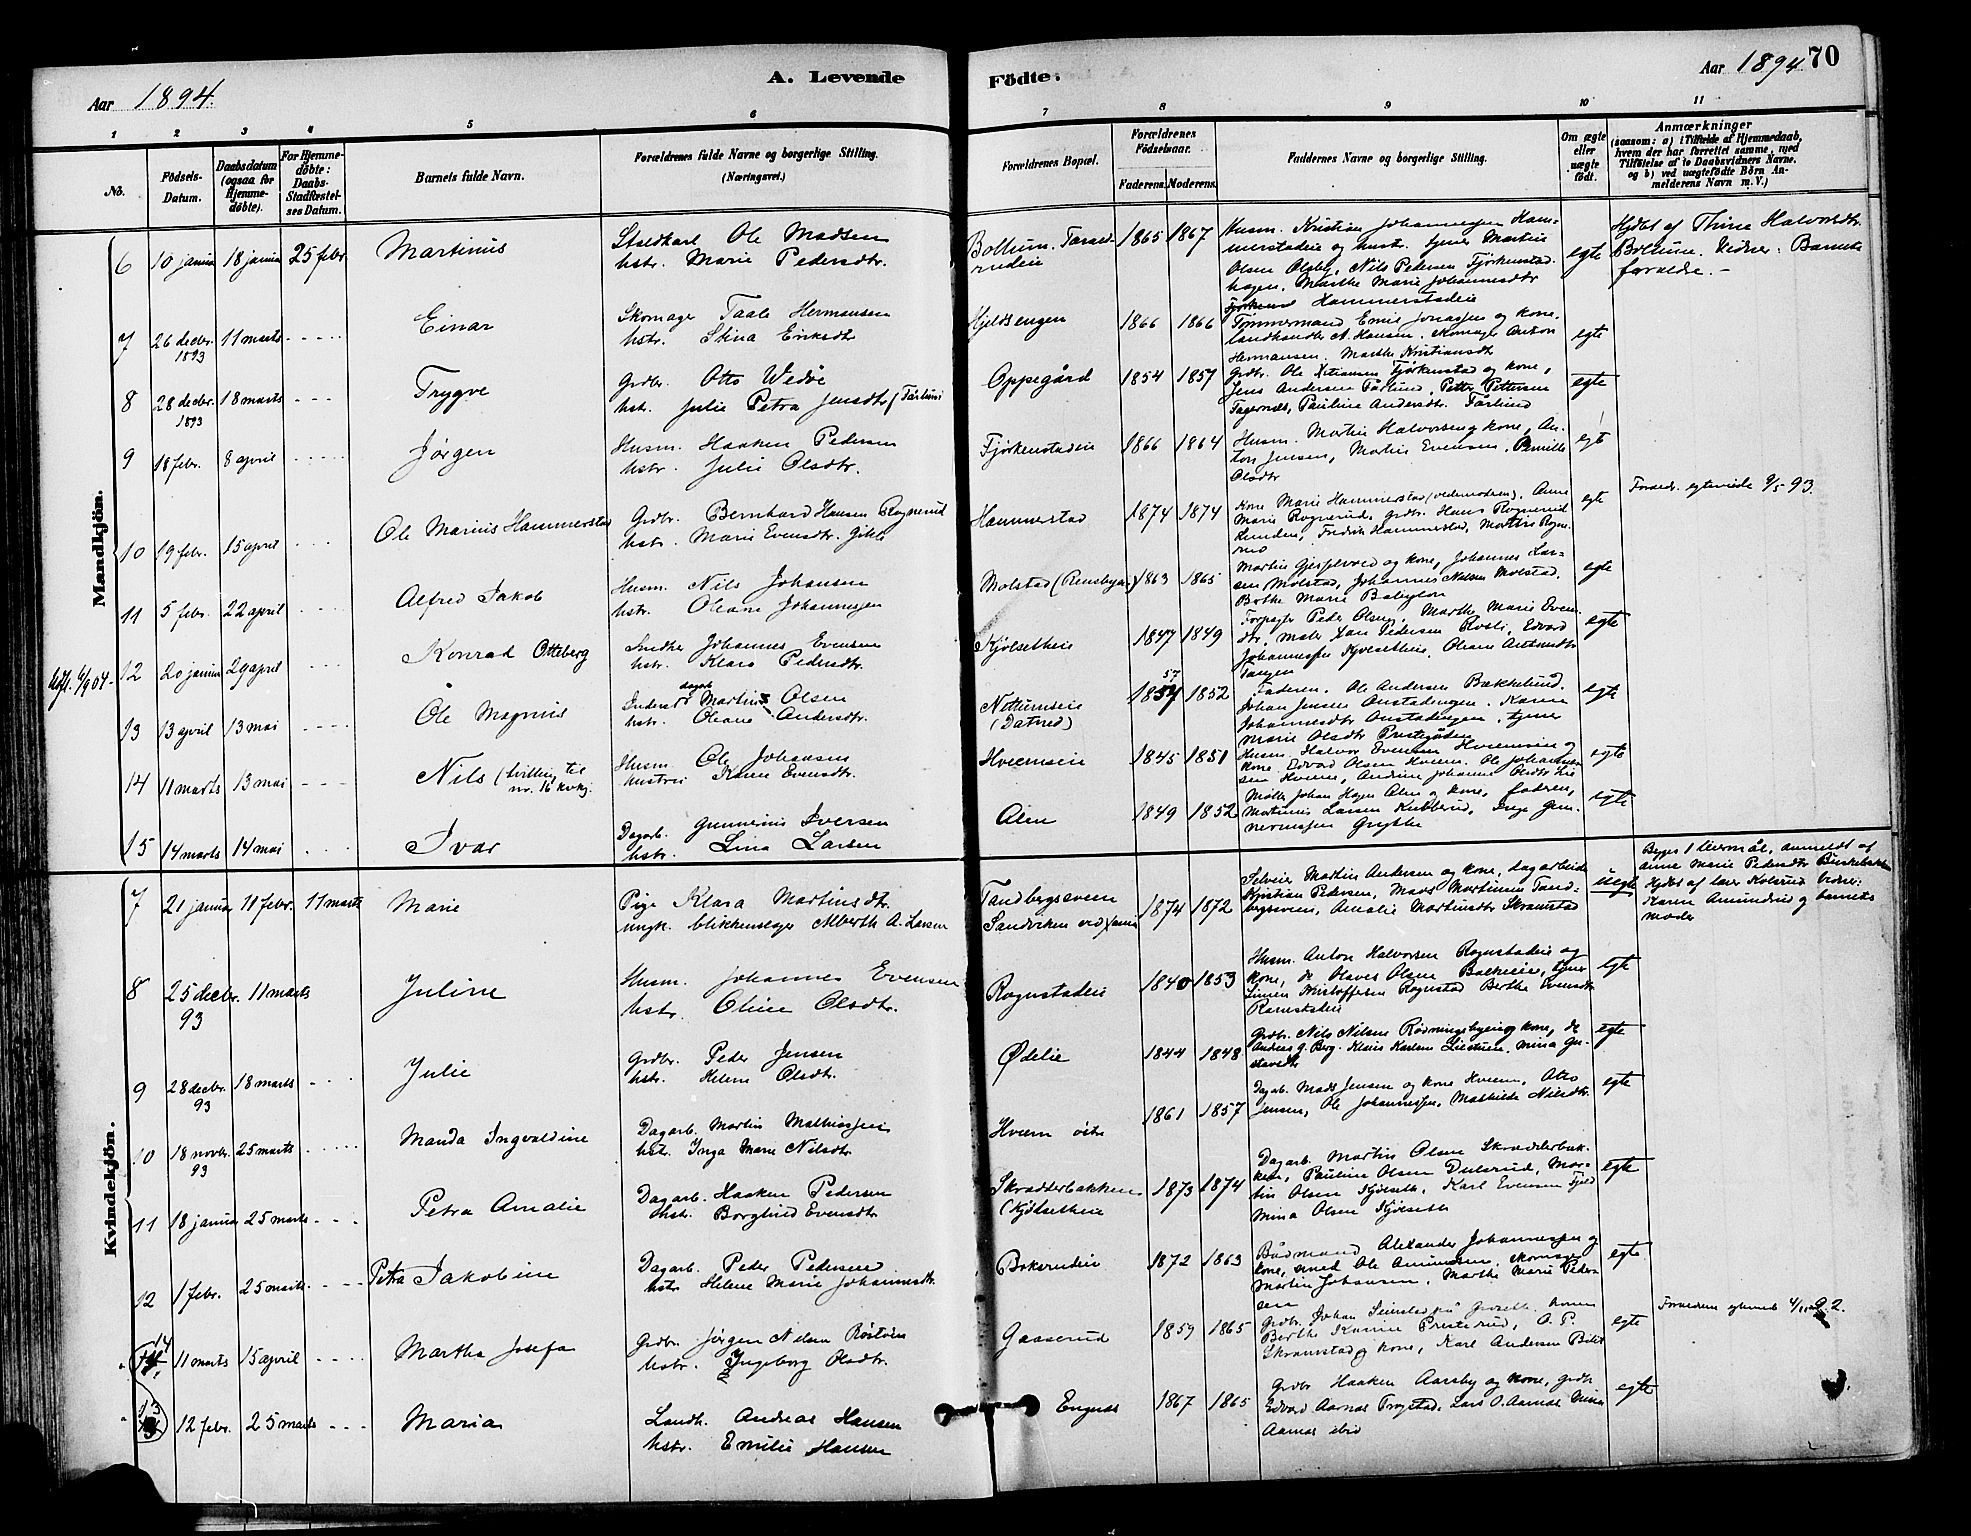 Aar 1894.
A. Levende
Fødte.
Aar 1894
70
1 2 3 4 5 6 7 8 9 10 11
No.
Fødsels-
Datum.
Daabsdatum
(ogsaa for
Hjemme-
døbte).
For Hjemme-
døbte:
Daabs-
Stadfæstel-
ses Datum.
Barnets fulde Navn.
Forældrenes fulde Navne og borgerlige Stilling.
(Næringsvei.)
Forældrenes Bopæl.
Forældrenes
Fødselsaar.
Faderens. Moderens.
Faddernes Navne og borgerlige Stilling.
Om ægte
eller
uægte
født.
Anmærkninger
(saasom: a) i Tilfælde af Hjemmedaab,
hvem der har forrettet samme, med
Tilføielse af to Daabsvidners Navne,
og b) ved uægtefødte Børn An-
melderens Navn m. V.)
Mandkjøn.
6 10 januar 18 januar 25 febr. Martinus
Staldkarl Ole Madsen
hstr. Marie Pedersdtr.
Bollum. Tarald-
rudeie
1865 1867
Husm. Kristian Johannessen Ham-
merstadeie og hustr. tjener Martin
Olsen Olsby, Nils Pedersen Fjørkenstad
hagen, Marthe Marie Johannesdtr
Hammerstadeie
egte
Hjdbt af Thina Halvorsdtr
Bollum. Vidner: Barnets
forælde. -
7 26 decbr. 1893 11 marts Einar
Skomager Taale Hermansen
hstr. Stina Eriksdtr
Hjeldsengen
1866 1866
Tømmermand Emil Jonassen og kone,
landhandler A. Hansen, Skomager Anton
Hermansen. Marthe Kristiansdtr
egte
8 28 decbr. 1893 18 marts Trygve
Grdbr. Otto Wedøe
hstr. Julie Petra Jensdtr (Førlund
Oppegård
1854 1857
Grdbr. Ole Kristiansen Fjørkenstad og kone,
Jens Andersen Førlund, Petter Pettersen
Fagernæs, Pauline Andersdtr. Førlund
egte
9 18 febr. 8 april Jørgen
Husm. Haaken Pedersen
hstr. Julie Olsdtr.
Fjørkenstadeie
1866 1864
Husm. Martin Halvorsen og kone, An-
ton Jensen, Martin Evensen, Pernille
Olsdtr
egt
10 19 febr. 15 april Ole Marius Hammerstad
Grdbr. Bernhard Hansen Rognerud
hstr. Marie Evensdtr.
Hammerstad
1874 1874
Kone Marie Hammerstad, Anne
Marie Rognerud, grdbr. Hans Rognerud
Lunden, Fredrik Hammerstad, Martin Rogne-
rud
egte
Forældr. egteviede 9/5 93.
11 5 febr. 22 april Alfred Jakob
Husm. Nils Johansen
hstr. Oleane Johannessen
Molstad
1863 1865
Martin Gjesplerud og kone, Johannes Lar-
sen Molstad, Johannes Nilsen Molstad,
Berthe Marie Babylon
egte
Udfl. 6/9 04.
12 20 januar 29 april Konrad Otteberg
Johannes Evensen
hstr. Klara Pedersdtr.
Kjølsetheie
1847 1849
Peder Olsen, Marthe Marie Even-
dtr, maler Hans Pedersen Rosli, Edvard
Johannessen Kjølsetheie, Oleane
Tangen
egte
13 13 april 13 mai Ole Magnus
dagarb
Martins Olsen
hstr. Oleane Andersdtr.
Netterneie
57
1854 1852
Faderen. Ole Andersen Bækkelund,
Johan Jensen Onstadengen, Karen
Johannesdtr Onstadengen, tjener
Marie Olsdtr Prestegården
egte
14 11 marts 13 mai Nils (tvilling til
nr. 16 kvkj.
Husm. Ole Johansen
hustrue Karen Evensdtr.
Hveemseie
1845 1851
Husm. Halvor Evensen Hveemseie og
kone, Edvard Olsen Hveem, Ole Johannes-
sen Hveem, Andrine Johanne Olsdtr Lie
egte
15 14 marts 14 mai Ivar
Dagarb. Gunnerius Iversen
hstr. Lina Larsen
Alm
1849 1852
Møller Johan Hagen Alm og kone, faderen,
Martinus Larsen Kubberud, Inge
egte
Kvindekjøn.
7 21 januar 11 febr. 11 marts Marie
Pige Klara Martinsdtr.
ungk. blikkenslager Alberth A. Larsen
Tandbergsveen
Sandviken ved Xania
1874 1872
Selveier Martin Andersen og kone, dagarbeider
Kristian Pedersen, Mads Martinsen Tand-
bergsveen, Amalie Martinsdtr Skramstad
uegte
Begges 1 leiermål, anmeldt af
Anne Marie Pedersdtr
Hjdbt af lærer Kolsrud vidner:
Karen Amundrud og barnets
moder
8 25 decbr. 93 11 marts Juline
Husm. Johannes Evensen
hstr. Oline Olsdtr.
Rognstadeie
1840 1853
Husm. Anton Halvorsen Rognstadeie og
kone, do Olaves Olsen, tjener
Simen Kristoffersen Rognstad Berthe Evensdtr
Rognstadeie
egte
9 28 decbr. 93 18 marts Julie
Grdbr. Peder Jensen
hstr. Helene Olsdtr.
Ødelie
1844 1848
Grdbr. Nils Nilsen og kone, do
Anders G. Berg, Klaus Karlsen, Mina Gu-
stavsdtr
egte
10 18 novbr. 93 25 marts Manda Ingvaldine
Dagarb. Martin Mathiassen
hstr. Inga Marie Nilsdtr.
Hveem østre
1861 1857
Dagarb. Mads Jensen og kone Hveem, Otto
Jensen, Ole Johannessen, Mathilde Nilsdtr.
egte
11 18 januar 25 marts Petra Amalie
Dagarb. Haaken Pedersen
hstr. Borghild Evensdtr
Skrædderbakken
(Kjølsetheie
1873 1874
Dagarb. Martin Olsen Skrædderbak-
ken, Pauline Olsen Dulsrud, Mar-
tin Olsen Kjølseth, Karl Evensen Fjeld
Mina Olsen Kjølseth
egte
12 1 febr. 25 marts Petra Jakobine
Dagarb. Peder Pedersen
hstr Helene Marie Johannesdtr.
Bakerudeie
1872 1863
Bødmand Alexander Johannessen og
kone, smed Ole Amundsen, skomager
Martin Johansen, Marthe Marie Peder-
sen
egte
14 11 marts 15 april Martha Josefa
Grdbr. Jørgen Nilsen Røstøen
hstr. Ingeborg Olsdtr.
Gaaserud
1859 1865
Grdbr. Johan Seierstad, kone
Berthe Karine Presterud, O. P.
Skramstad og kone, Karl Andersen
egte
Forældrene egteviede 4/11 92.
13 12 febr. 25 marts Maria
Landh. Andreas Hansen
hstr. Emilie Hansen
Engnæs
1867 1865
Grdbr Haaken Aarsby og kone, grdb
Edvard Aarnæs Trogstad, Lars O. Aarnæs Mina
Aarnæs ibid
egte